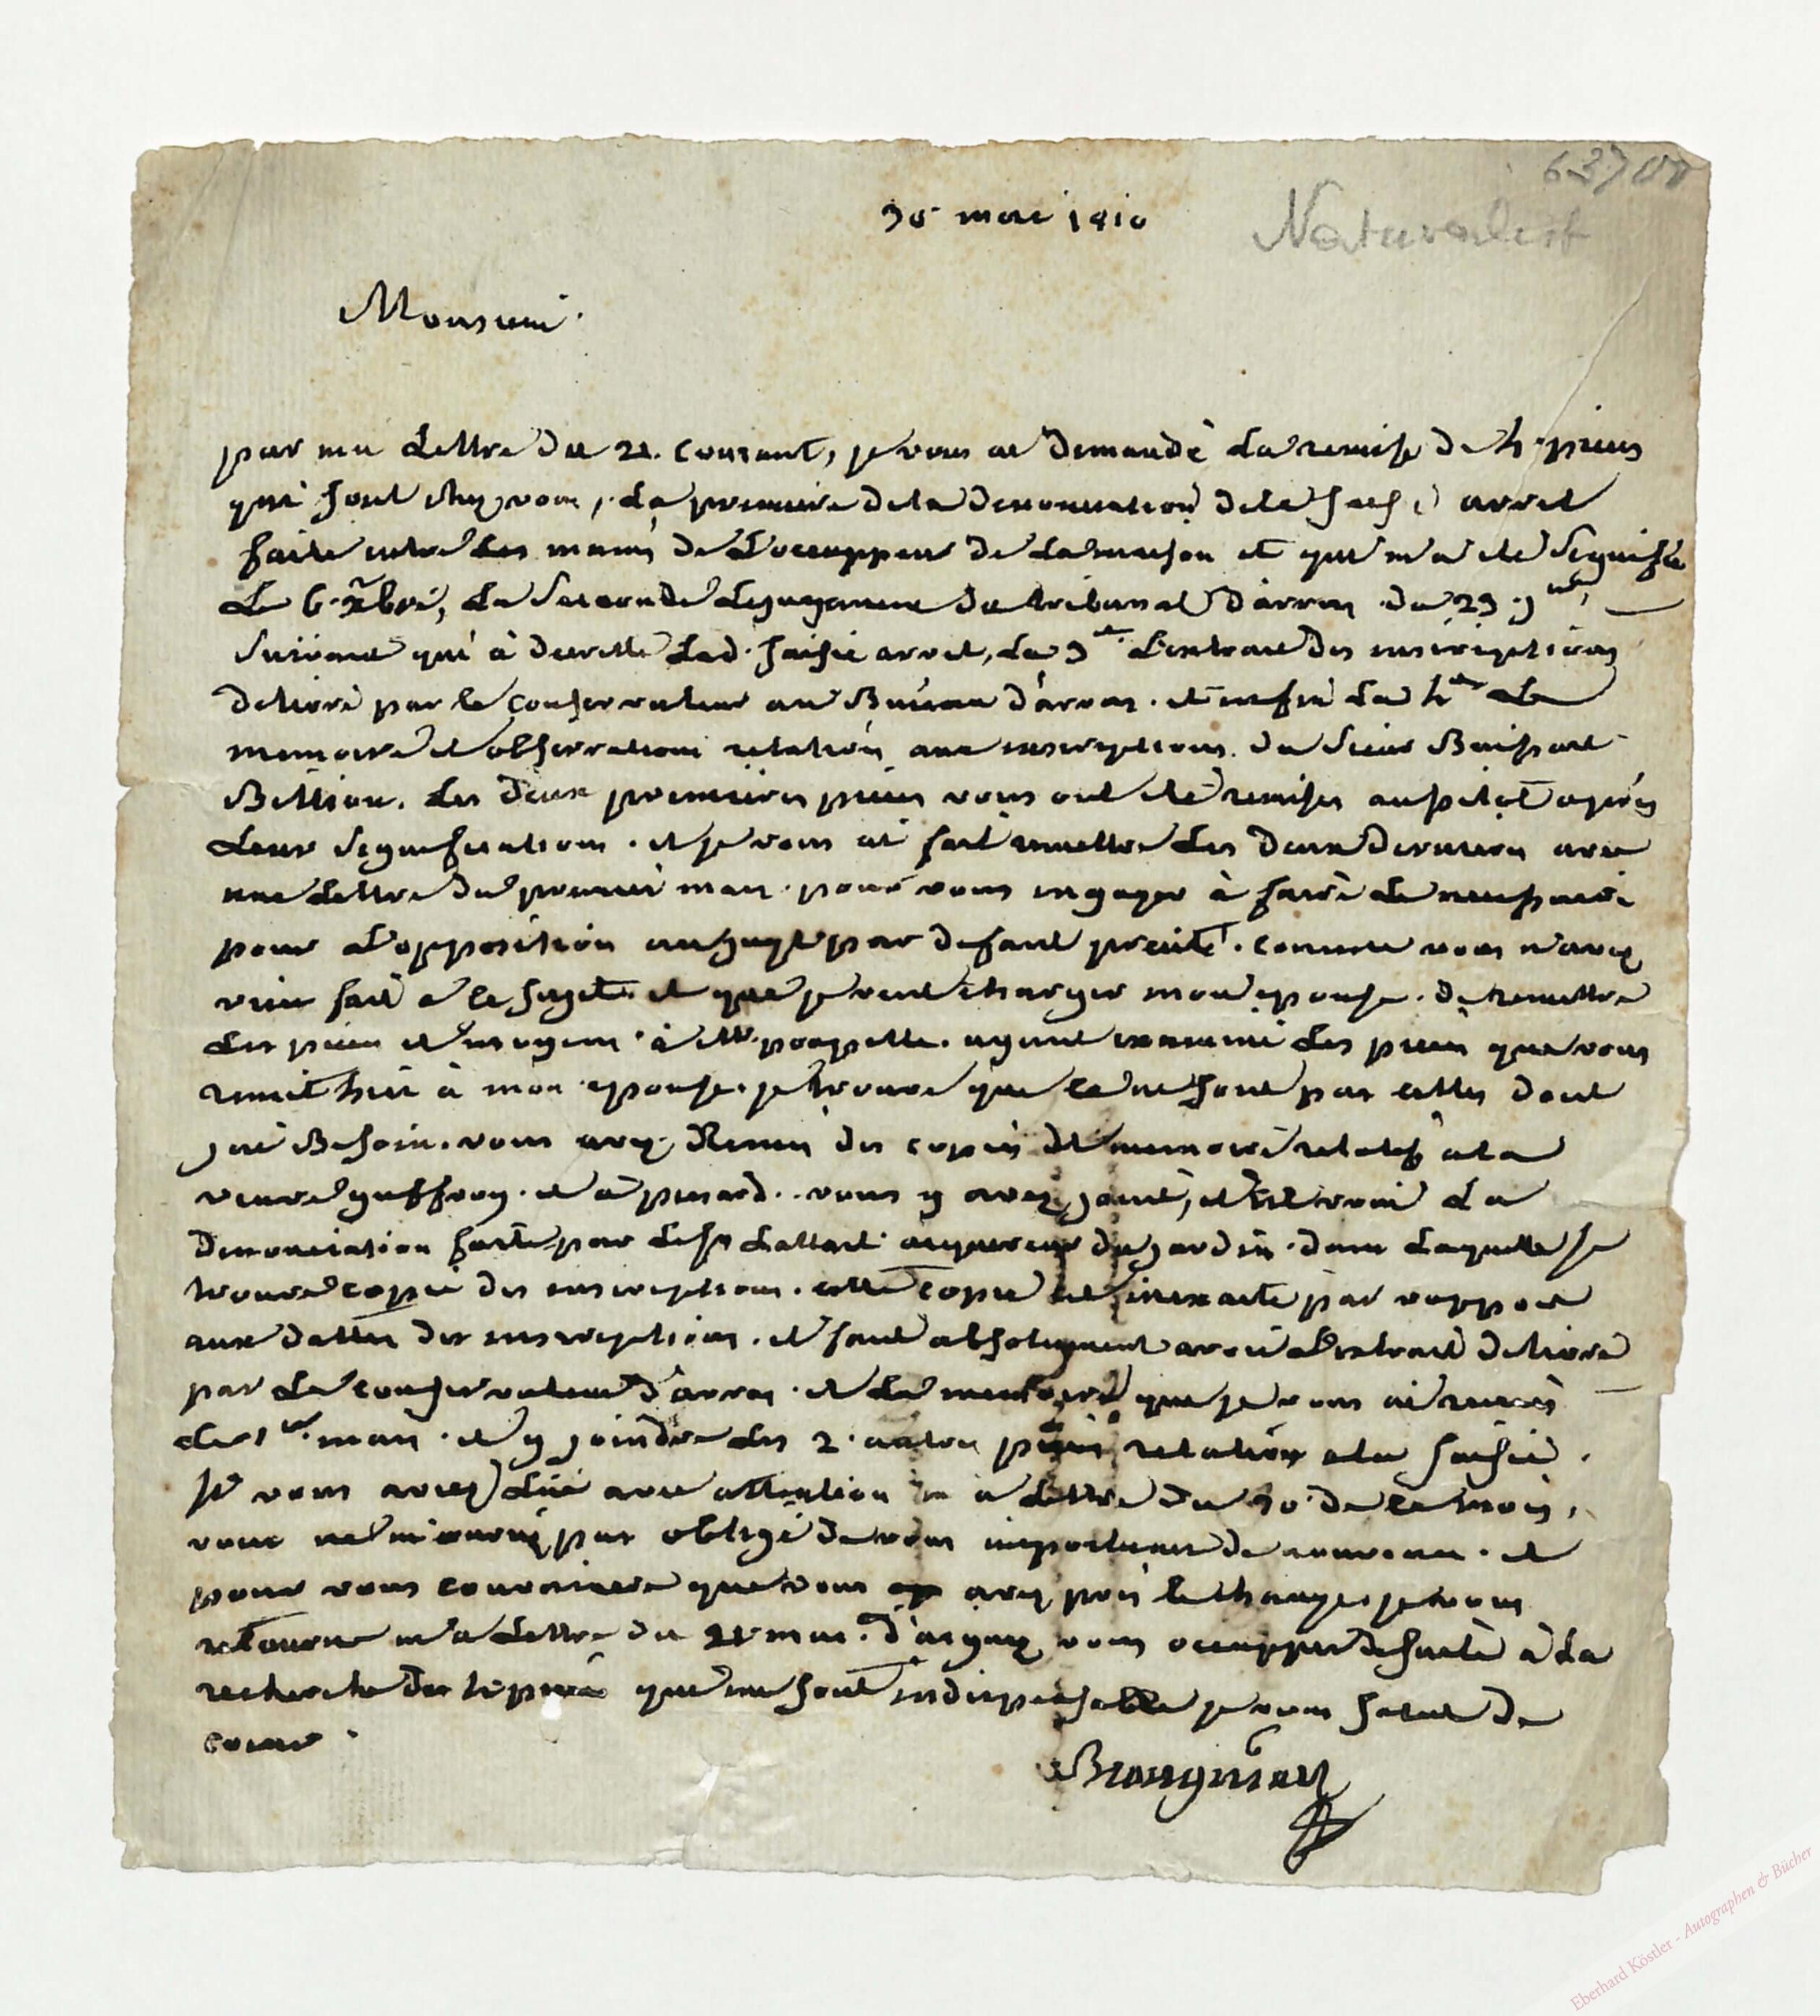 63700
Naturalist
30 mars 1810
Monsieur.
par ma Lettre du 21. Courant, je vous ai demandé La remise de 4 pieces
qui sont chez vous, La premiere de la denonciation de la saisie arret
faite entre Les mains de L'occuppeur de La maison et qui m'a été signifiée
Le 6 xbre, La seconde Le jugement du tribunal d'arras du 29 9bre
suivant qui à decretté Lad. saisie arret, La 3e L'extrait des inscriptions
delivré par le conservateur au Bureau d'arras. et enfin La 4e Le
memoire et observations relatives aux inscriptions du sieur
Les deux premieres pieces vous ont été remises aussitot après
Leur signification. et je vous ai fait remettre Les deux dernieres avec
une Lettre du premier mars. pour vous engager à faire Le necessaire
pour L'opposition au jugt par defaut precité. comme vous n'avez
rien fait a ce sujet. et que je veut charger mon epouse. de remettre
Les pieces et moyens à Mr. ayant examiné Les pieces que vous
remit hier à mon epouse. je trouve que ce ne sont pas celles dont
j'ai Besoin. vous avez Remis des copies de memoire relatif a la
veuve guffroy. et a pinard. vous y avez joint, et La
denonciation faite par Le sr Lallart acquereur du jardin. dans Laquelle se
trouve copie des inscriptions. cette copie est inexacte par rapport
aux dattes des inscriptions. il faut absolument avoir L'extrait delivré
par Le conservateur d'arras. et Le memoire que je vous ai remis
Le 1er mars. et y joindre Les 2. autres pieces relatives a la saisie.
si vous aviez Lue avec attention ma Lettre du 20 de ce mois,
vous ne m'auriez pas obligé de vous importuner de nouveau. et
pour vous convaincre que vous avez pris le change. je vous
retourne ma Lettre du 21 mars. daignez vous occupper de suite à La
recherche des 4 pieces qui me sont indispensables je vous salut de
coeur.
Brongniart
Eberhard Köstler - Autographen & Bücher